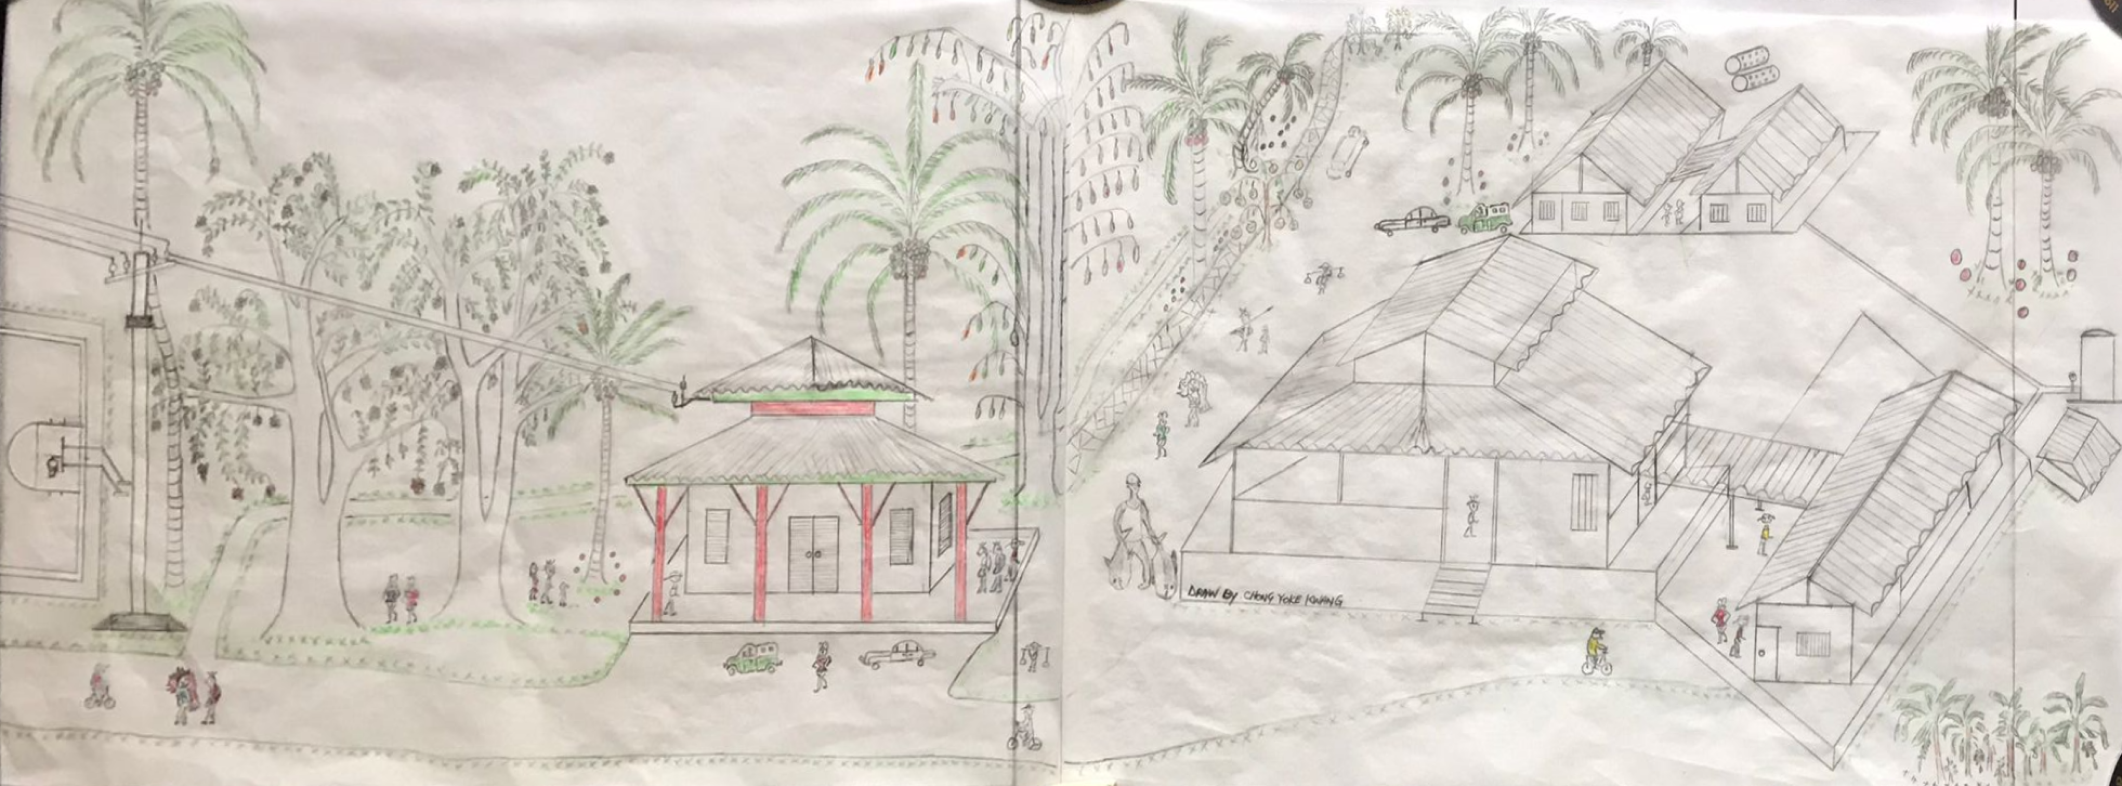 DRAW BY CHONG YOKE KWANG